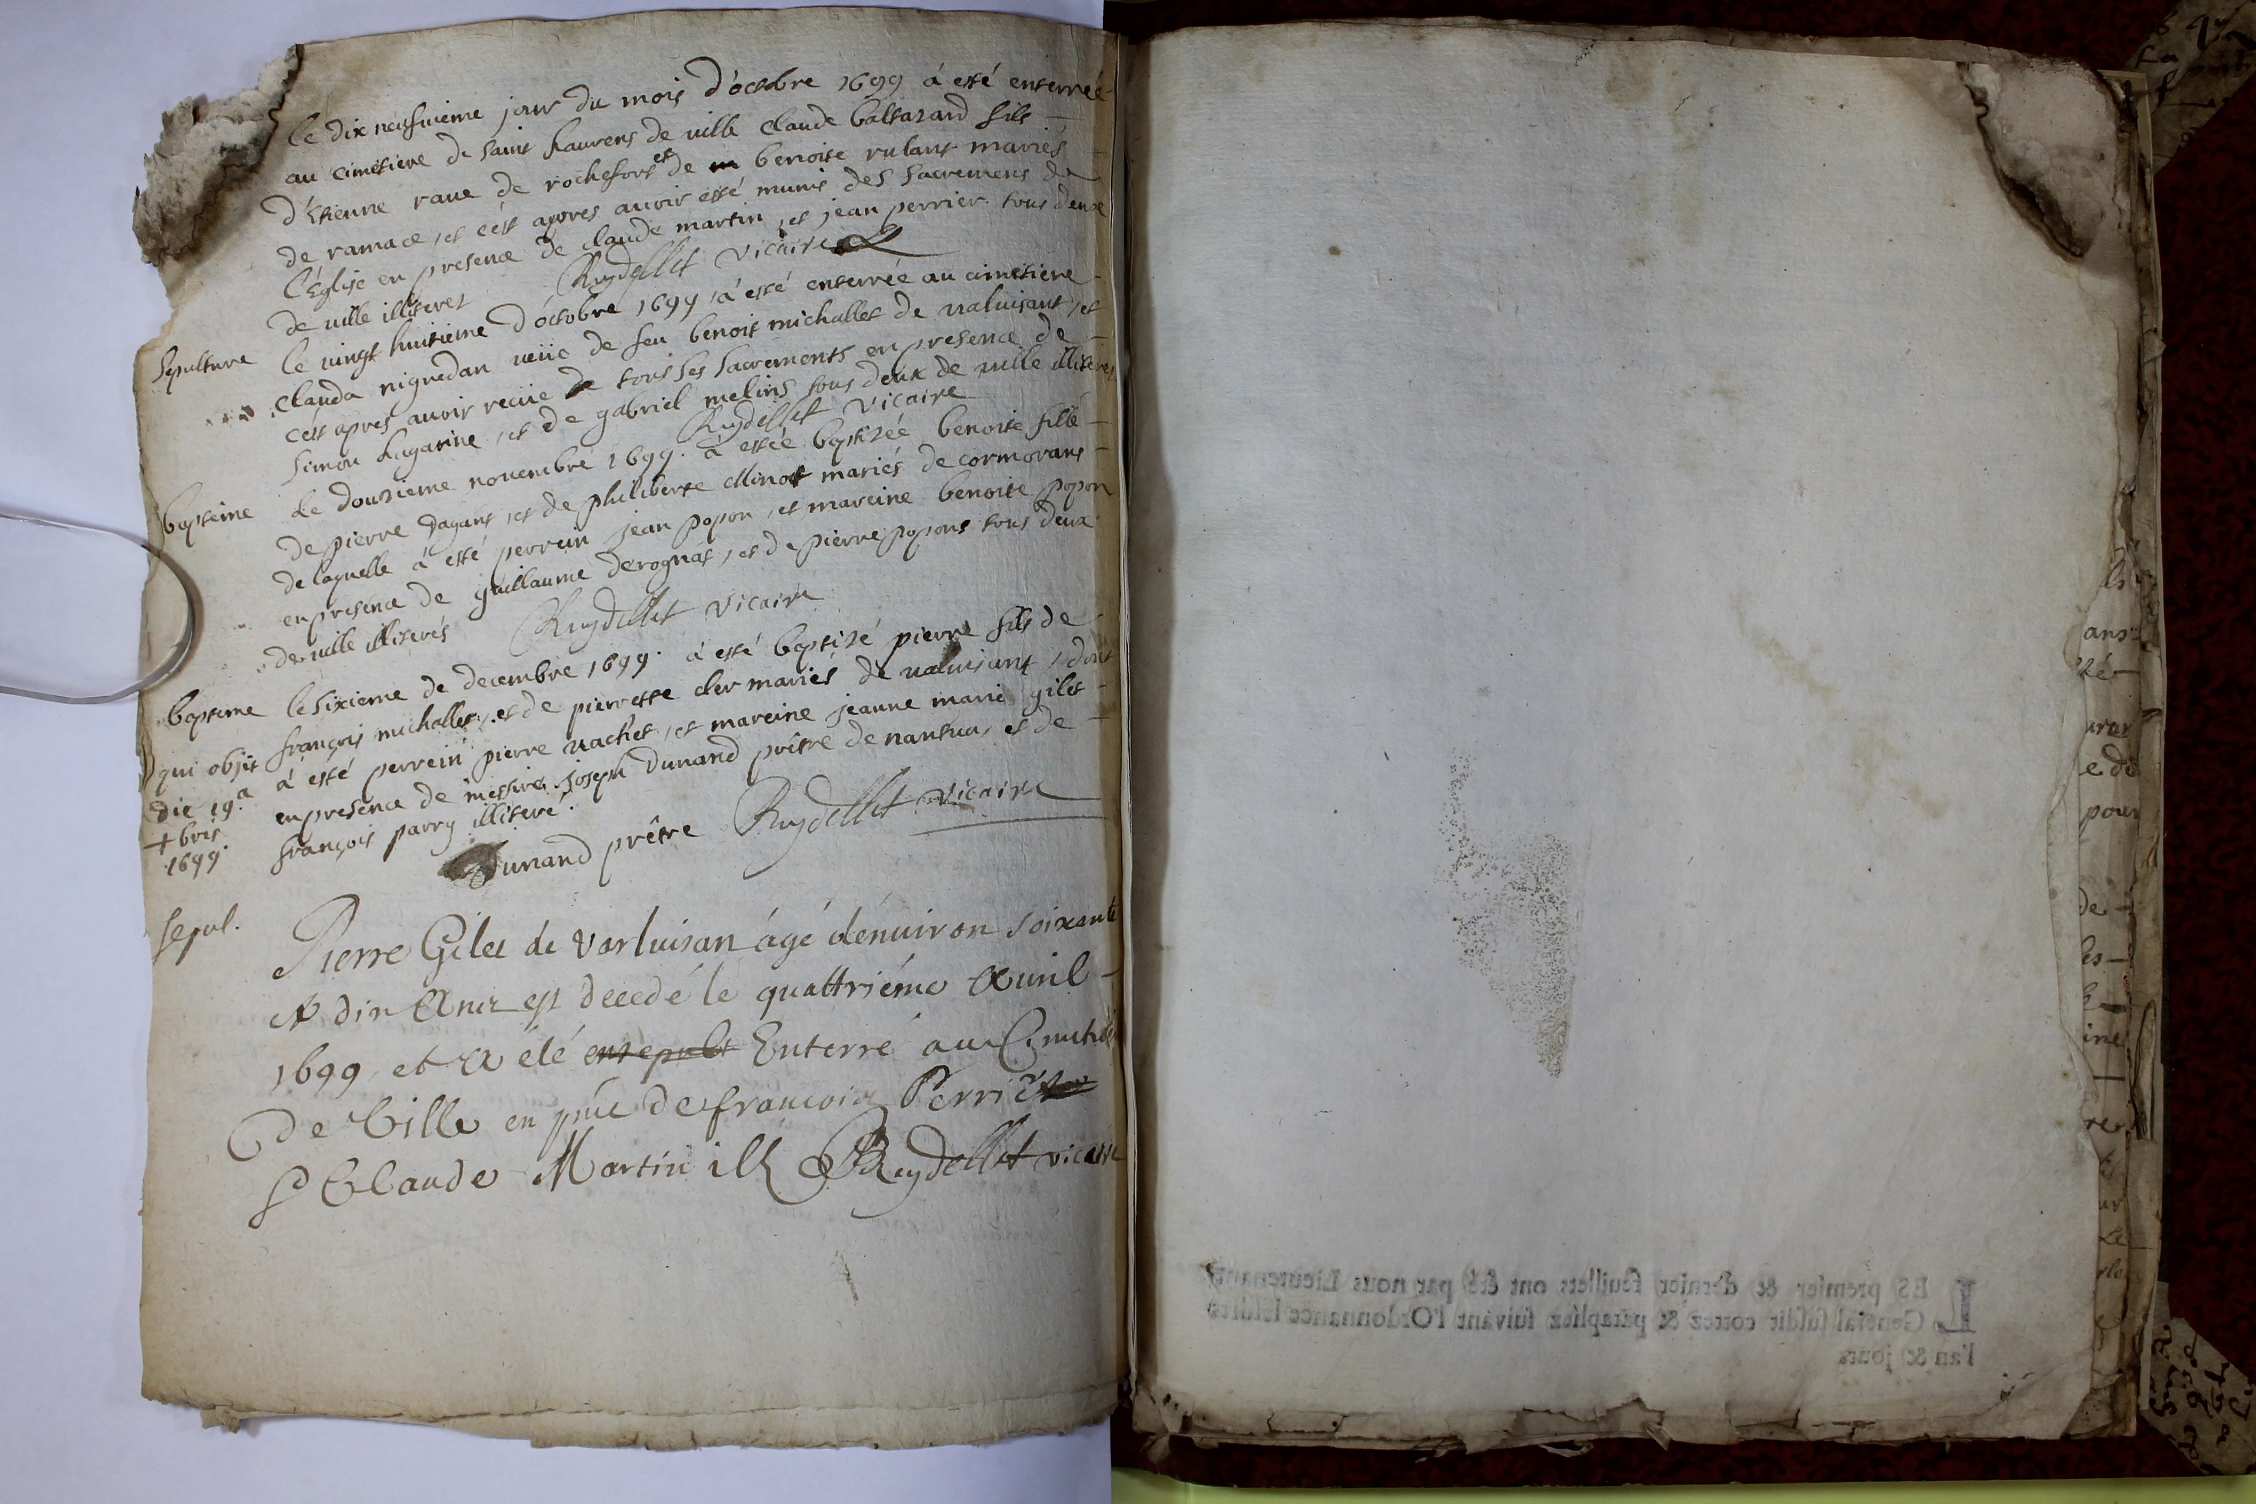 le dix neufuieme jour du mois d'octobre 1699 á esté enterreé
au cimetiere de saint Laurens de ville claude baltazard fils
d'Etienne raue de rochefort et de benoite rulant mariés
de ramace, et cést apores auoir esté munis des sacremens de
l'église en presence de claude martin, et jean perrier tous deux
de ville illiteres Ruydellet vicaire
Sepulture le uingt huitieme d'óctobre 1699, á esté enterrée au cimetiere
clauda niguedan ueüe de feu benoit michallet de naluisant, et
cést apres auoir recüe de tous ses sacrements en presence de
simon Lagarine, et de gabriel melins tous deux de uille illiteres
Ruydellet vicaire
baptéme Le douzieme nouembre 1699. á estée baptizée benoite fille
de pierre dagant, et de philiberte Minot mariés de cormorans
de laquelle á esté perrein jean popon, et mareine benoite popon
en presence de guillaume derognat, et de pierre popons tous deux
de uille illiterés Ruydellet vicaire
baptéme le sixieme de decembre 1699. á esté baptizé pierre fils de
françois michallet, et de pierrette cler mariés de naluisant, dont
qui objit á esté perrein pierre uachet, et mareine jeanne marie gilet
die 19.a en presence de messire joseph dunand prêtre de nantua, et de
+bris françois parry illiteré.
1699.
Dunand prêtre Ruydellet vicaire
Sepul. Pierre Gilet de Varluisan ágé dénuiron soixante
et dix Ans est decedé le quattriéme Auril
1699 et A été ensepult Enterré au Cimetiè
de Ville en pñce de francois Perrier
& Claude Martin ill Ruydellet vicaire
LES premier & dernier feuillets ont été par nous Lieutenant
General susdit cottez & paraphez suivant l'Ordonnance lesdits
l'an & jours